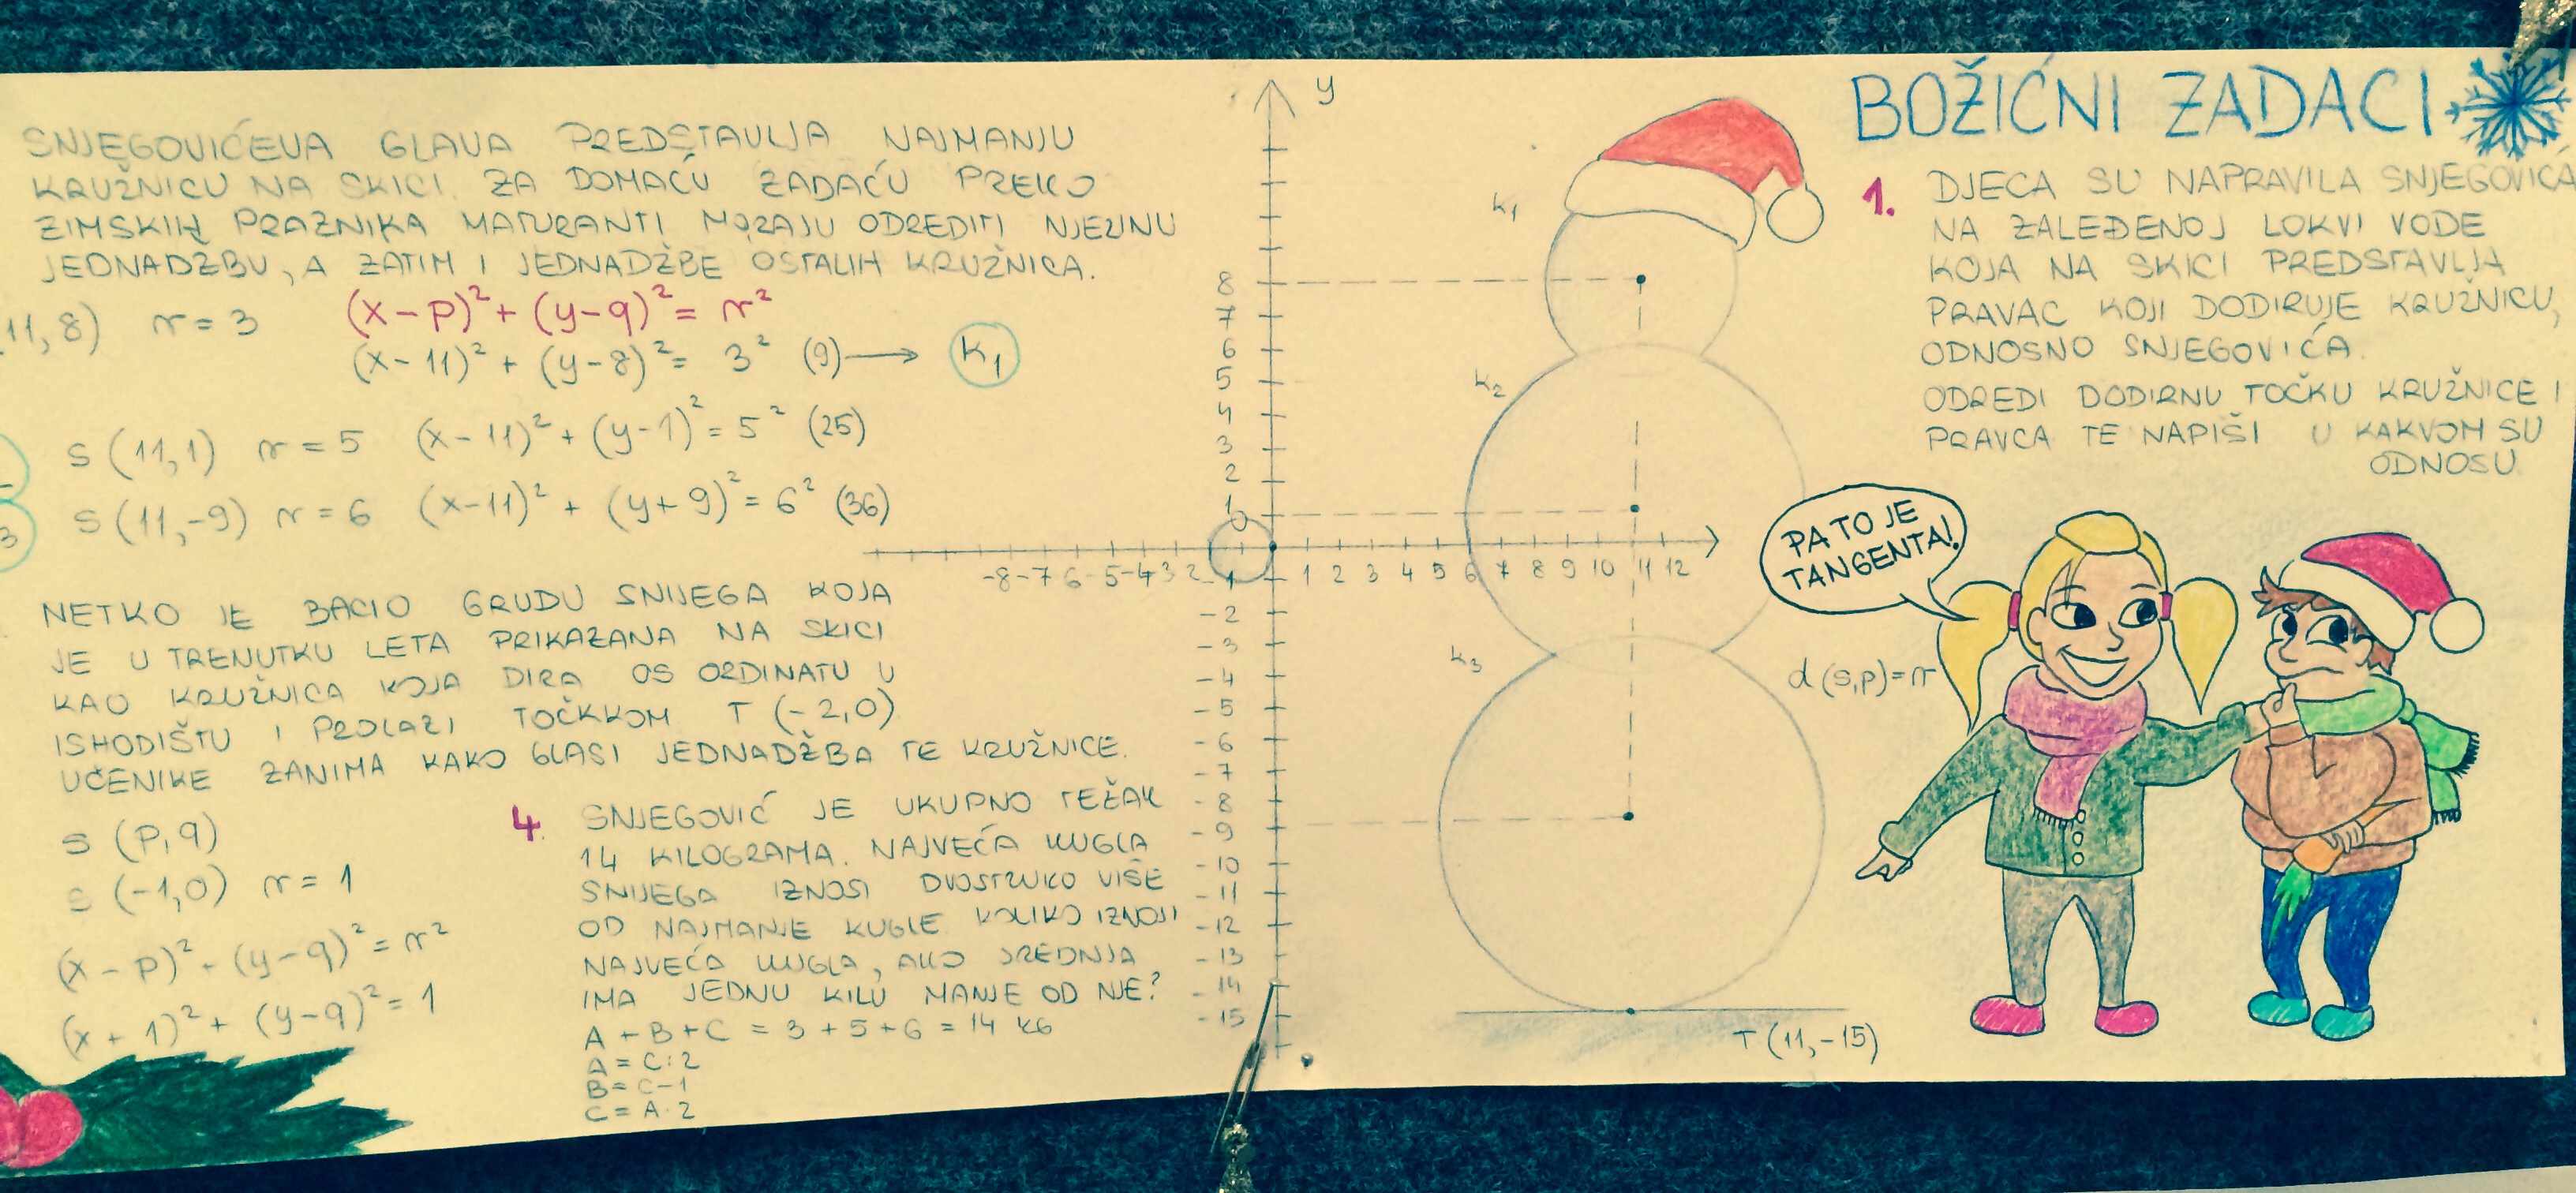 BOŽIĆNI ZADACI
1. DJECA SU NAPRAVILA SNJEGOVIĆA
NA ZALEĐENOJ LOKVI VODE
KOJA NA SKICI PREDSTAVLJA
PRAVAC KOJI DODIRUJE KRUŽNICU,
ODNOSNO SNJEGOVIĆA.
ODREDI DODIRNU TOČKU KRUŽNICE I
PRAVCA TE NAPIŠI U KAKVOM SU
ODNOSU
PA TO JE
TANGENTA!
d(s,p)=r
T(11,-15)
SNJEGOVIĆEVA GLAVA PREDSTAVLJA NAJMANJU
KRUŽNICU NA SKICI. ZA DOMAĆU ZADAĆU PREKO
ZIMSKIH PRAZNIKA MATURANTI MORAJU ODREDITI NJEZINU
JEDNADŽBU, A ZATIM I JEDNADŽBE OSTALIH KRUŽNICA.
11,8) r=3 (x-p)²+(y-q)²=r²
(x-11)²+(y-8)²=3² (9)→ k1
S(11,1) r=5 (x-11)²+(y-1)²=5² (25)
3 S(11,-9) r=6 (x-11)²+(y+9)²=6² (36)
NETKO JE BACIO GRUDU SNIJEGA KOJA
JE U TRENUTKU LETA PRIKAZANA NA SKICI
KAO KRUŽNICA KOJA DIRA OS ORDINATU U
ISHODIŠTU I PROLAZI TOČKKOM T(-2,0)
UČENIKE ZANIMA KAKO GLASI JEDNADŽBA TE KRUŽNICE.
S(p,q)
S(-1,0) r=1
(x-p)²-(y-q)²=r²
(x+1)²+(y-q)²=1
4. SNJEGOVIĆ JE UKUPNO TEŽAK
14 KILOGRAMA. NAJVEĆA KUGLA
SNIJEGA IZNOSI DVOSTRUKO VIŠE
OD NAJMANJE KUGLE. KOLIKO IZNOSI
NAJVEĆA KUGLA, AKO SREDNJA
IMA JEDNU KILU MANJE OD NJE?
A+B+C=3+5+6=14 KG
A=C:2
B=C-1
C=A·2
y
k1
k2
k3
8
7
6
5
4
3
2
1
0
-8 -7 6 -5 -4 3 2 1 2 3 4 5 6 7 8 9 10 11 12
1
-2
-3
-4
-5
-6
-7
-8
-9
-10
-11
-12
-13
-14
-15